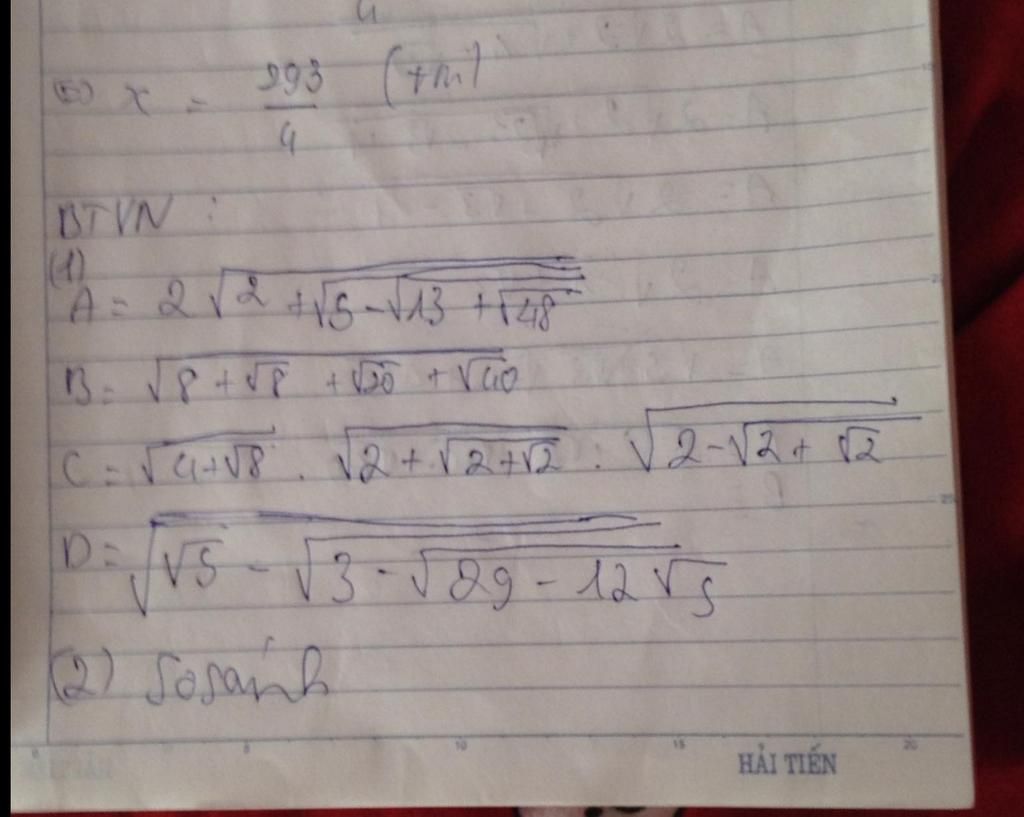 4
(=) x = 293/4 (tm)
BTVN :
(1)
A = 2√(2 + √(5 - √(13 + √48)))
B = √(8 + √8 + √20 + √40)
C = √(4+√8) . √(2 + √(2+√2)) . √(2 - √(2 + √2))
D = √(√5 - √(3 - √(29 - 12√5)))
(2) So sánh
5 10 15 20
HẢI TIẾN